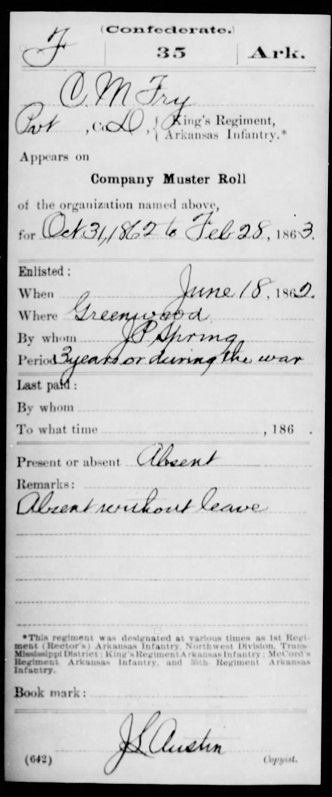 (Confederate.)
F 35 Ark.
C M Fry
Pvt, Co. D, King's Regiment, Arkansas Infantry.*
Appears on
Company Muster Roll
of the organization named above,
for Oct 31, 1862 to Feb 28, 1863.
Enlisted:
When June 18, 1862.
Where Greenwood
By whom J P Spring
Period 3 years or during the war
Last paid:
By whom
To what time , 186 .
Present or absent Absent
Remarks:
Absent without leave
*This regiment was designated at various times as 1st Regi-
ment (Rector's) Arkansas Infantry, Northwest Division, Trans-
Mississippi District; King's Regiment Arkansas Infantry; McCord's
Regiment Arkansas Infantry, and 35th Regiment Arkansas
Infantry.
Book mark:
J L Austin
(642) Copyist.